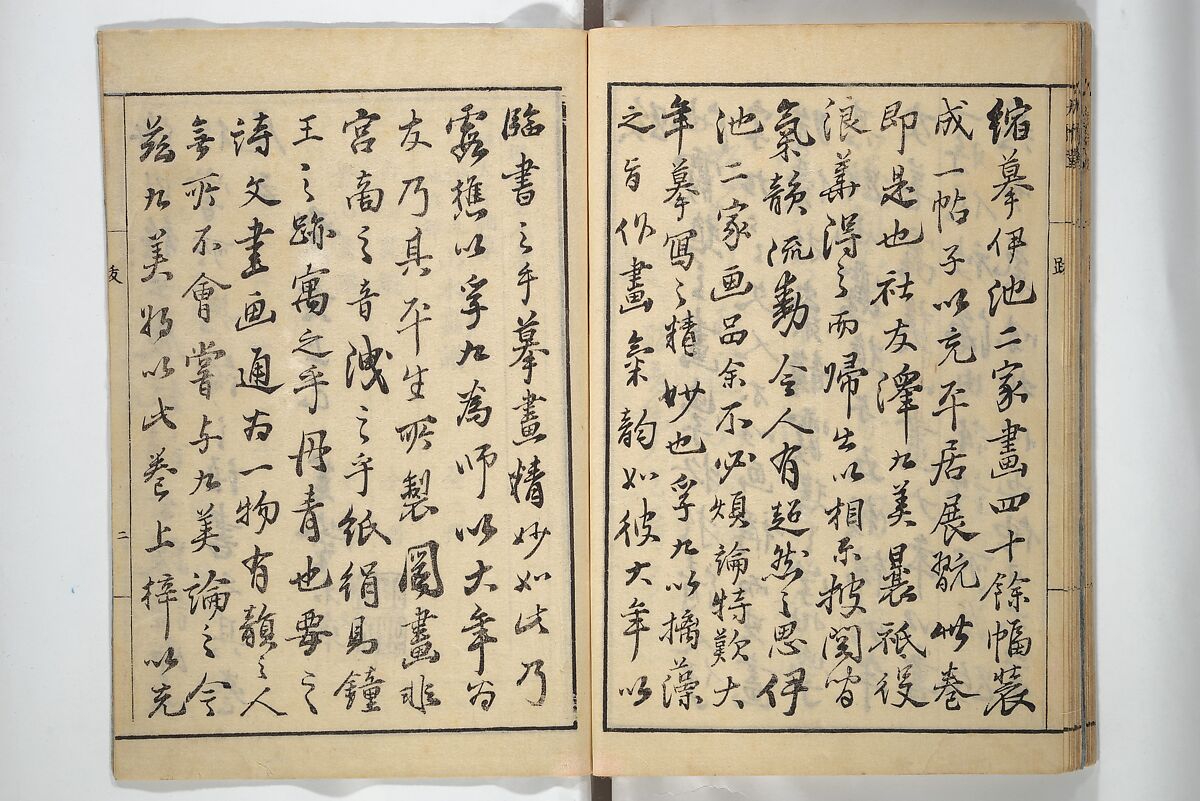 縮摹伊池二家畫四十餘幅裝
成一帖子以充平居展翫此卷
即是也社友澤九美曩祇役
浪華得之而歸出以相示披閲皆
氣韻流動令人有超然之思伊
池二家画品余不必煩論特歎大
年摹寫之精妙也孚九以摛藻
之旨作畫氣韵如彼大年以
臨書之手摹畫精妙如此乃
以孚九為師以大年為
友乃具平生所製圖畫非
宮商之音洩之乎紙絹則鐘
王之跡寓之乎丹青也要之
詩文畫画通為一物有韻之人
無所不會嘗与九美論之今
茲九美將以此卷上梓以充
友
二